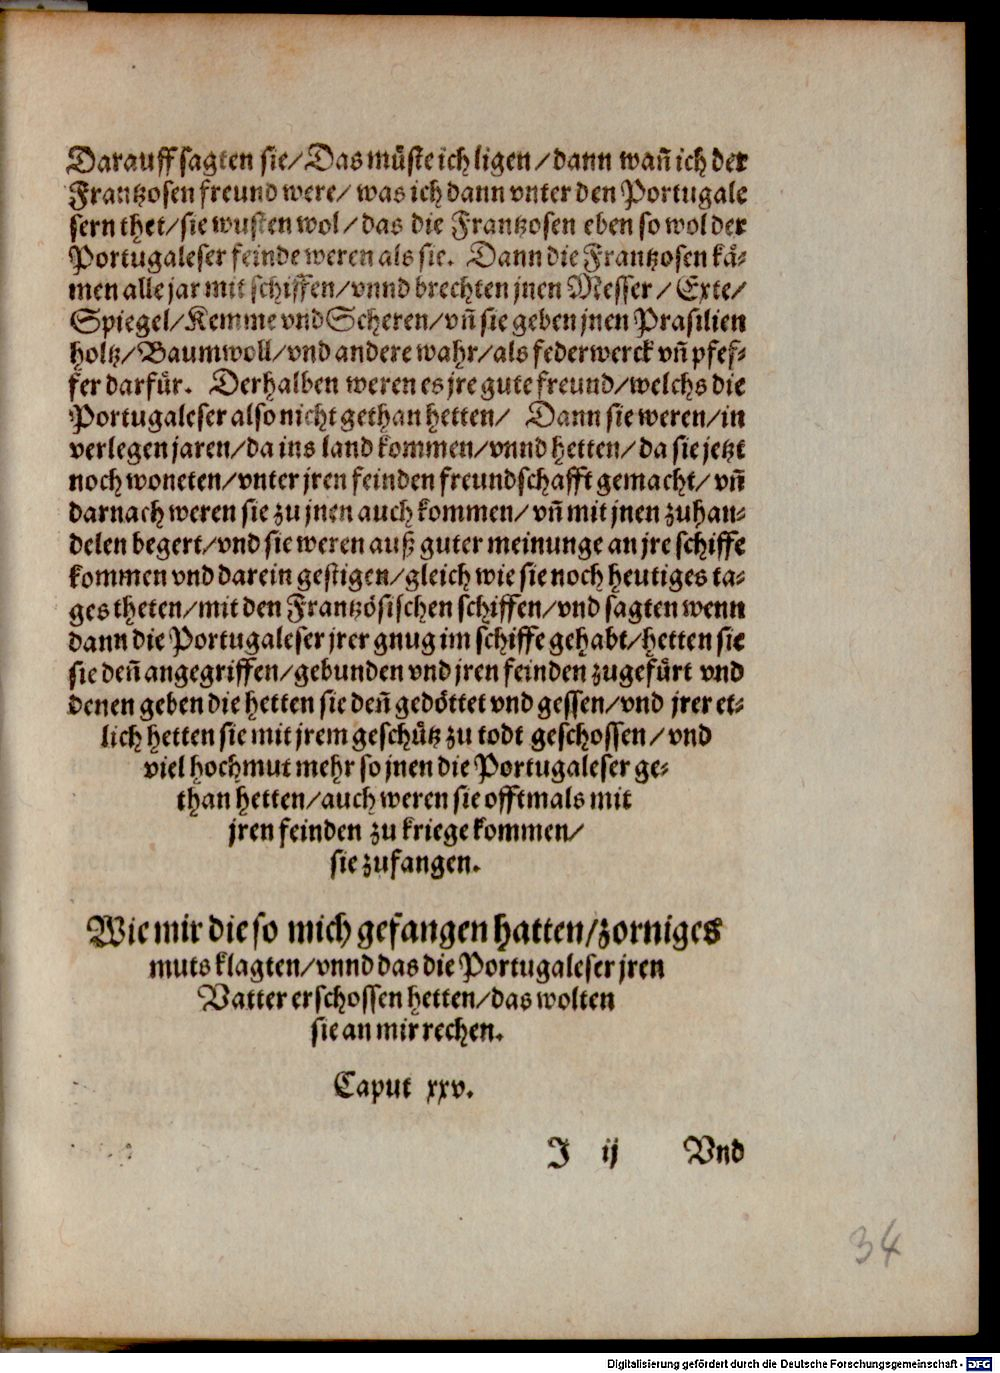 Darauff sagten sie/ Das müste ich ligen/ dann wañ ich der
Frantzosen freund were/ was ich dann vnter den Portugale
sern thet/ sie wusten wol/ das die Frantzosen eben so wol der
Portugaleser feinde weren als sie. Dann die Frantzosen kä-
men alle jar mit schiffen/ vnnd brechten jnen Messer/ Exte/
Spiegel/ Kemme vnd Scheren/ vñ sie geben jnen Prasilien
holtz/ Baumwoll/ vnd andere wahr/ als federwerck vñ pfef-
fer darfür. Derhalben weren es jre gute freund/ welchs die
Portugaleser also nicht gethan hetten/ Dann sie weren/ in
verlegen jaren/ da ins land kommen/ vnnd hetten/ da sie jetzt
noch woneten/ vnter jren feinden freundschafft gemacht/ vñ
darnach weren sie zu jnen auch kommen/ vñ mit jnen zuhan-
delen begert/ vnd sie weren auß guter meinunge an jre schiffe
kommen vnd darein gestigen/ gleich wie sie noch heutiges ta-
ges theten/ mit den Frantzösischen schiffen/ vnd sagten wenn
dann die Portugaleser jrer gnug im schiffe gehabt/ hetten sie
sie deñ angegriffen/ gebunden vnd jren feinden zugefürt vnd
denen geben die hetten sie deñ gedöttet vnd gessen/ vnd jrer et-
lich hetten sie mit jrem geschütz zu todt geschossen/ vnd
viel hochmut mehr so jnen die Portugaleser ge-
than hetten/ auch weren sie offtmals mit
jren feinden zu kriege kommen/
sie zufangen.
Wie mir die so mich gefangen hatten/ zorniges
muts klagten/ vnnd das die Portugaleser jren
Vatter erschossen hetten/ das wolten
sie an mir rechen.
Caput xxv.
J ij Vnd
34
Digitalisierung gefördert durch die Deutsche Forschungsgemeinschaft - DFG